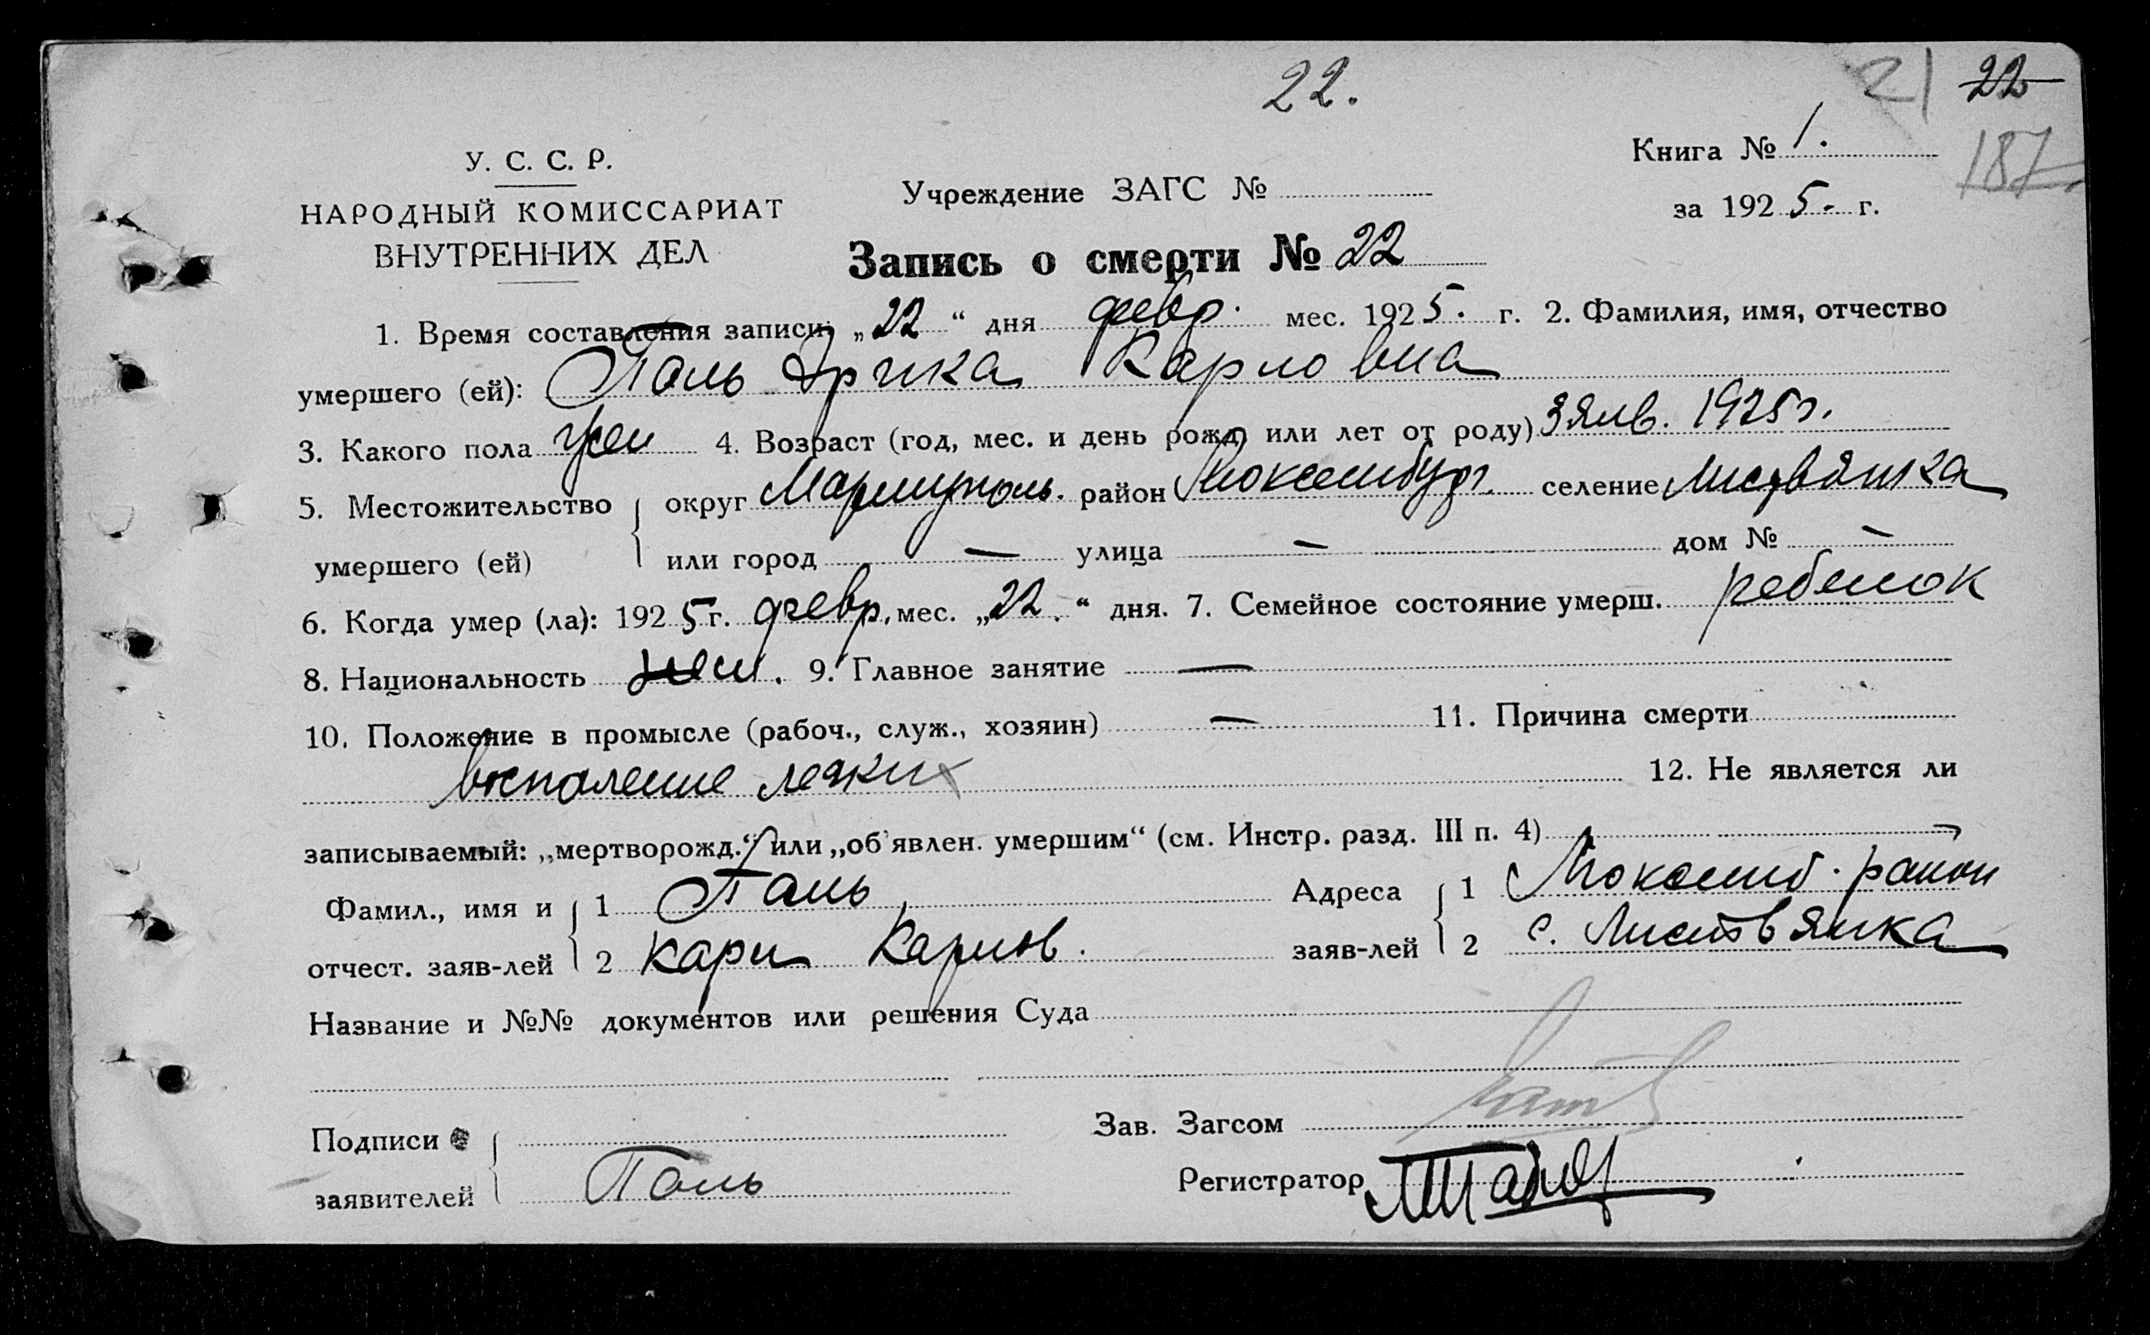 22.
21 22
187
У. С. С. Р.
НАРОДНЫЙ КОМИССАРИАТ
ВНУТРЕННИХ ДЕЛ
Учреждение ЗАГС №
Книга № 1.
за 1925. г.
Запись о смерти № 22
1. Время составления записи: „22“ дня февр. мес. 1925. г. 2. Фамилия, имя, отчество
умершего (ей): Паль Эрика Карловна
3. Какого пола жен 4. Возраст (год, мес. и день рожд. или лет от роду) 3 янв. 1925 г.
5. Местожительство умершего (ей) округ Мариуполь. район Люксембург. селение Листвянка
или город — улица — дом № —
6. Когда умер (ла): 1925 г. февр. мес. „22.“ дня. 7. Семейное состояние умерш. ребенок
8. Национальность нем. 9. Главное занятие —
10. Положение в промысле (рабоч., служ., хозяин) — 11. Причина смерти
воспаление легких 12. Не является ли
записываемый: „мертворожд.“ или „об'явлен. умершим“ (см. Инстр. разд. III п. 4)
Фамил., имя и отчест. заяв-лей 1 Паль Адреса заяв-лей 1 Люксемб. район
2 Карл Карлов. 2 с. Листвянка
Название и №№ документов или решения Суда
Подписи заявителей Паль
Зав. Загсом
Регистратор